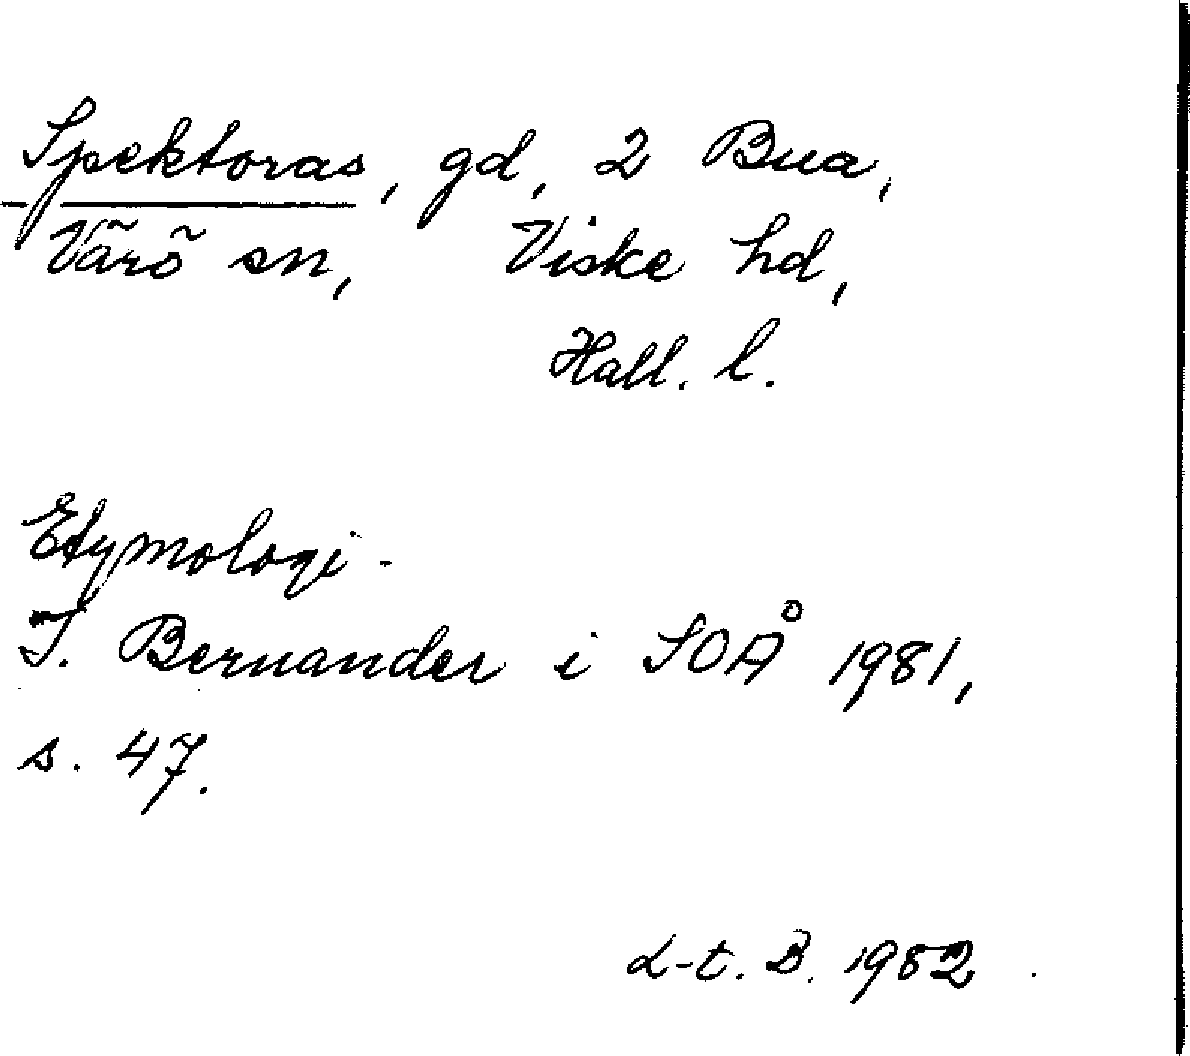 Spektoras, gd, 2 Bua,
Värö sn, Viske hd,
Hall. l.
Etymologi.
I. Bernander i SOÅ 1981,
s. 47.
L-t. B. 1982